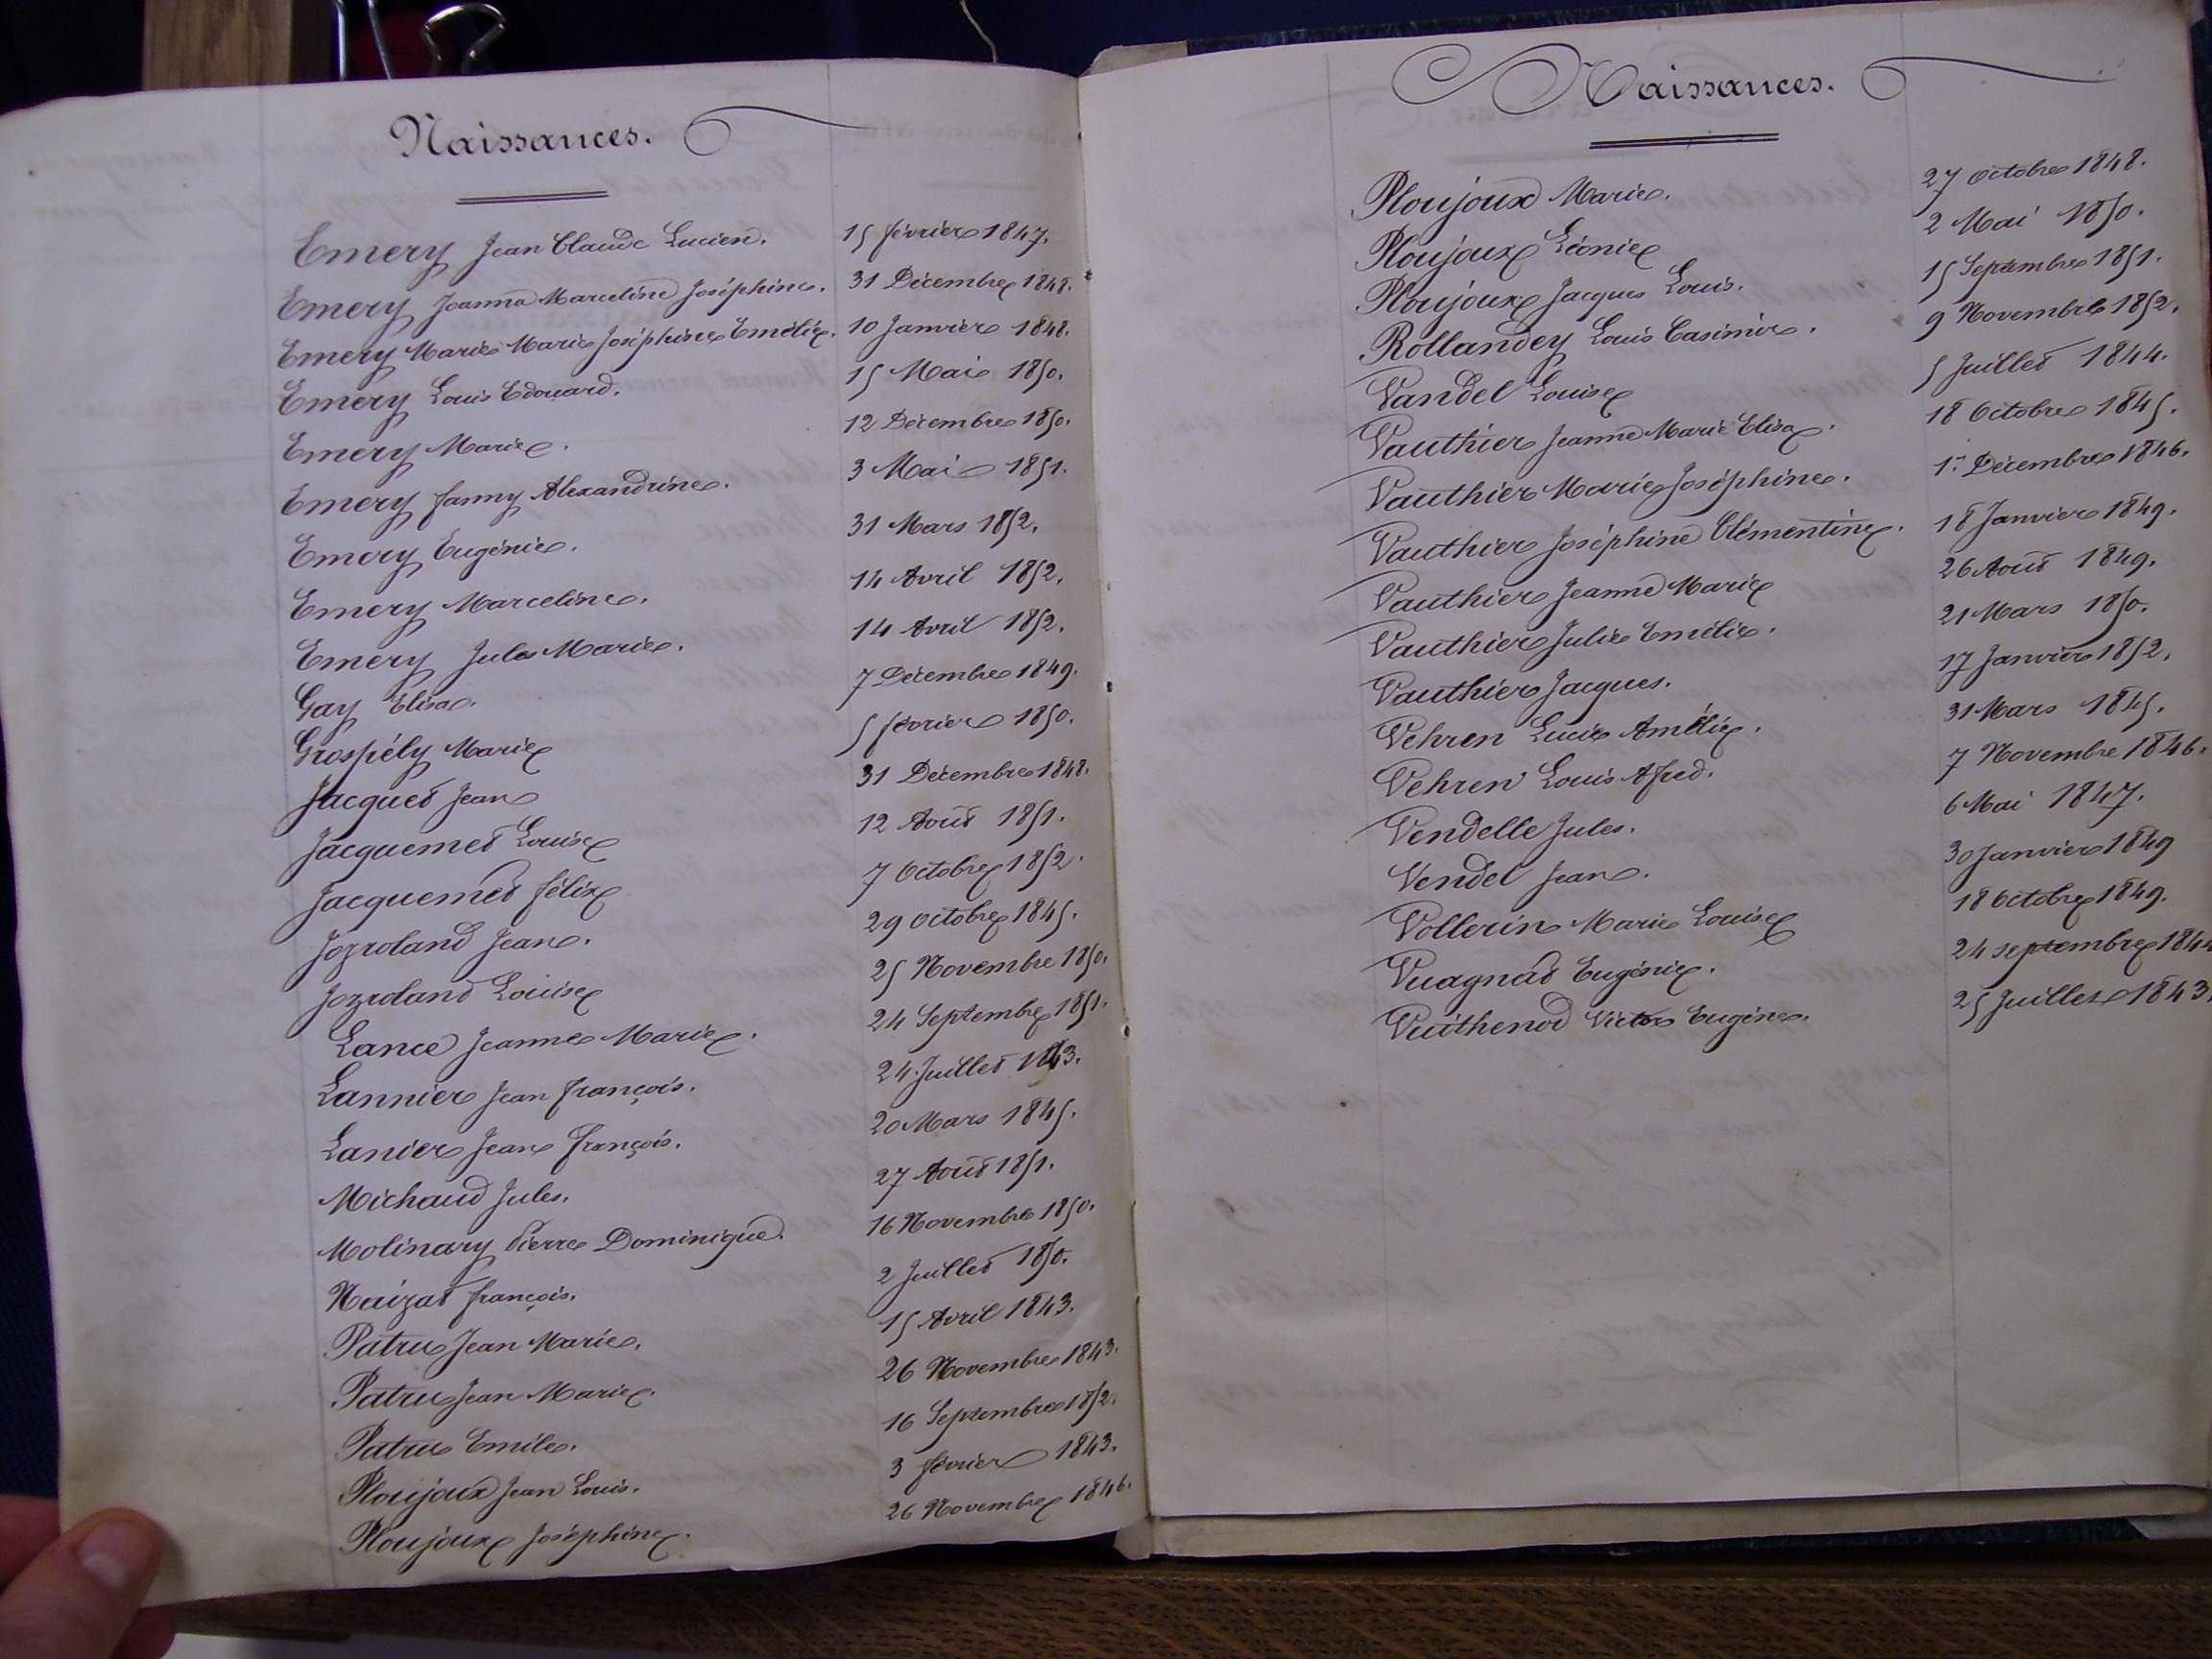 Naissances.
Emery Jean Claude Lucien. 15 février 1847.
Emery Joanna Marceline Joséphine. 31 Décembre 1848.
Emery Marie Marie Joséphine Emélie. 10 Janvier 1848.
Emery Louis Edouard. 15 Mai 1850.
Emery Marie. 12 Décembre 1850.
Emery fanny Alexandrine. 3 Mai 1851.
Emery Eugénie. 31 Mars 1852.
Emery Marceline. 14 Avril 1852.
Emery Jules Marie. 14 Avril 1852.
Gay Elisa. 7 Décembre 1849.
Grospély Marie 5 février 1850.
Jacquet Jean 31 Décembre 1848.
Jacquemet Louise 12 Août 1851.
Jacquemet félix 7 Octobre 1852.
Jozroland Jean. 29 Octobre 1845.
Jozroland Louise 25 Novembre 1850.
Lance Jeanne Marie. 24 Septembre 1851.
Lannier Jean françois. 24 Juillet 1843.
Lanier Jean françois. 20 Mars 1845.
Michaud Jules. 27 Août 1851.
Molinary Pierre Dominique. 16 Novembre 1850.
Naizat françois. 2 Juillet 1850.
Patru Jean Marie. 15 Avril 1843.
Patru Jean Marie. 26 Novembre 1843.
Patru Emile. 16 Septembre 1852.
Ploujoux Jean Louis. 3 février 1843.
Ploujoux Joséphine. 26 Novembre 1846.
Naissances.
Ploujoux Marie. 27 Octobre 1848.
Ploujoux Léonie 2 Mai 1850.
Ploujoux Jacques Louis. 15 Septembre 1851.
Rollandey Louis Casimir. 9 Novembre 1852.
Vandel Louise 5 Juillet 1844.
Vauthier Jeanne Marie Elisa. 18 Octobre 1845.
Vauthier Marie Joséphine. 1er Décembre 1846.
Vauthier Joséphine Clémentine. 18 Janvier 1849.
Vauthier Jeanne Marie 26 Août 1849.
Vauthier Julie Emélie. 21 Mars 1850.
Vauthier Jacques. 17 Janvier 1852.
Vehren Lucie Amélie. 31 Mars 1845.
Vehren Louis Afred. 7 Novembre 1846.
Vendelle Jules. 6 Mai 1847.
Vendel Jean. 30 Janvier 1849
Vollerin Marie Louise 18 Octobre 1849.
Vuagnat Eugénie. 24 septembre 1844
Vuithenod Victor Eugène. 25 Juillet 1843.